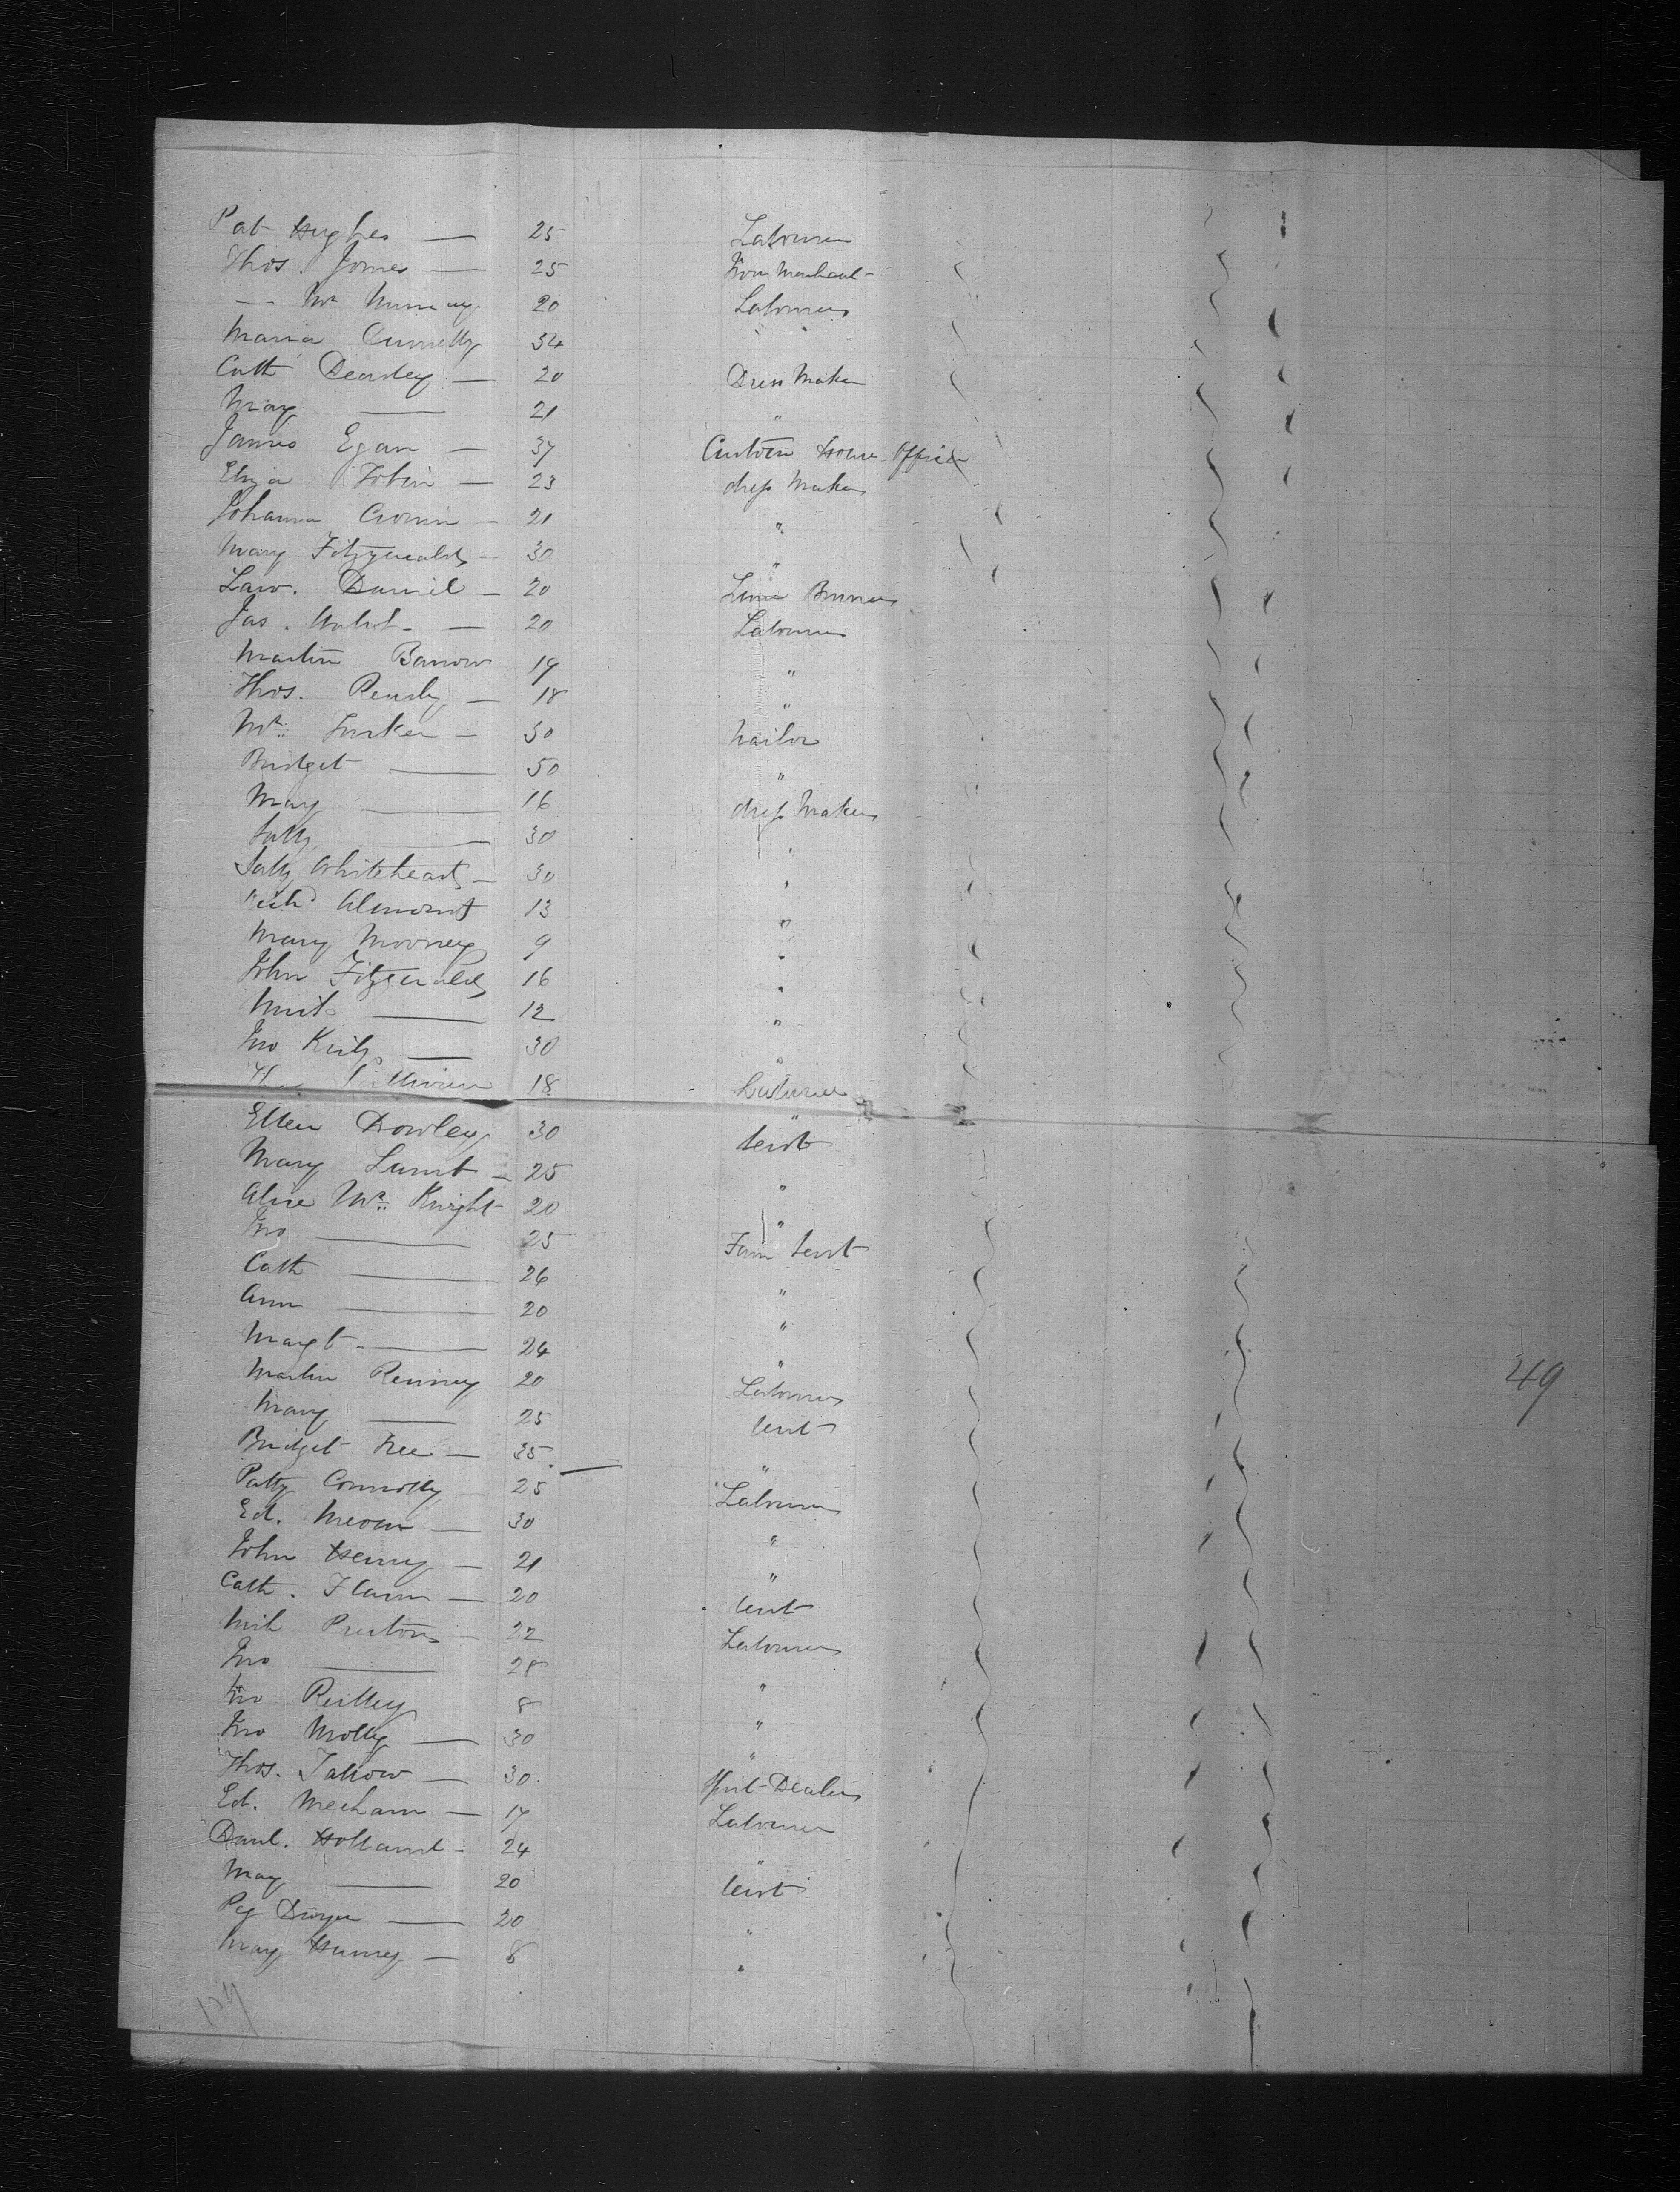 Pat Hughes — 25 Labourer
Thos. Jones — 25 Iron Merchant
-- Mc Murray 20 Labourer
Maria Connelly 34 "
Cath Dearley — 20 Dress Maker
Mary — 21 "
James Egan — 37 Custom House Officer
Eliza Tobin — 23 dress Maker
Johanna Cronin — 21 "
Mary Fitzgerald — 30 "
Law. Daniel — 20 Lime Burner
Jas. Walsh — 20 Labourer
Martin Barrow 19 "
Thos. — 18 "
30 Sailor
Bridget — 50 "
Mary — 16 dress Maker
Sally — 30 "
Sally Whitehead — 30 "
Almont 13 "
Mary Mooney 9 "
John Fitzgerald 16 "
— 12 "
Jno — 30 "
Sullivan 18 Labourer
Ellen Dowley 30 Sert
Mary Lamb — 25 "
Alice Mc Knight 20 "
Jno — 25 Farm Sert
Cath — 26 "
Ann — 20 "
Margt — 24 "
Martin Renney 20 Labourer
Mary — 25 Sert
Bridget Free — 35 "
Patty Connolly 25 Labourer
Ed. — 30 "
John Henry — 21 "
Cath. Flann — 20 Sert
Mich Preston — 22 Labourer
Jno — 28 "
Jno Reilley 8 "
Jno Molly — 30 "
Thos. Tallow — 30 Spirit Dealer
Ed. Mecham — 17 Labourer
Danl. Holland — 24 "
Mary — 20 Sert
Peg Dwyer — 20 "
Mary — 8 "
49